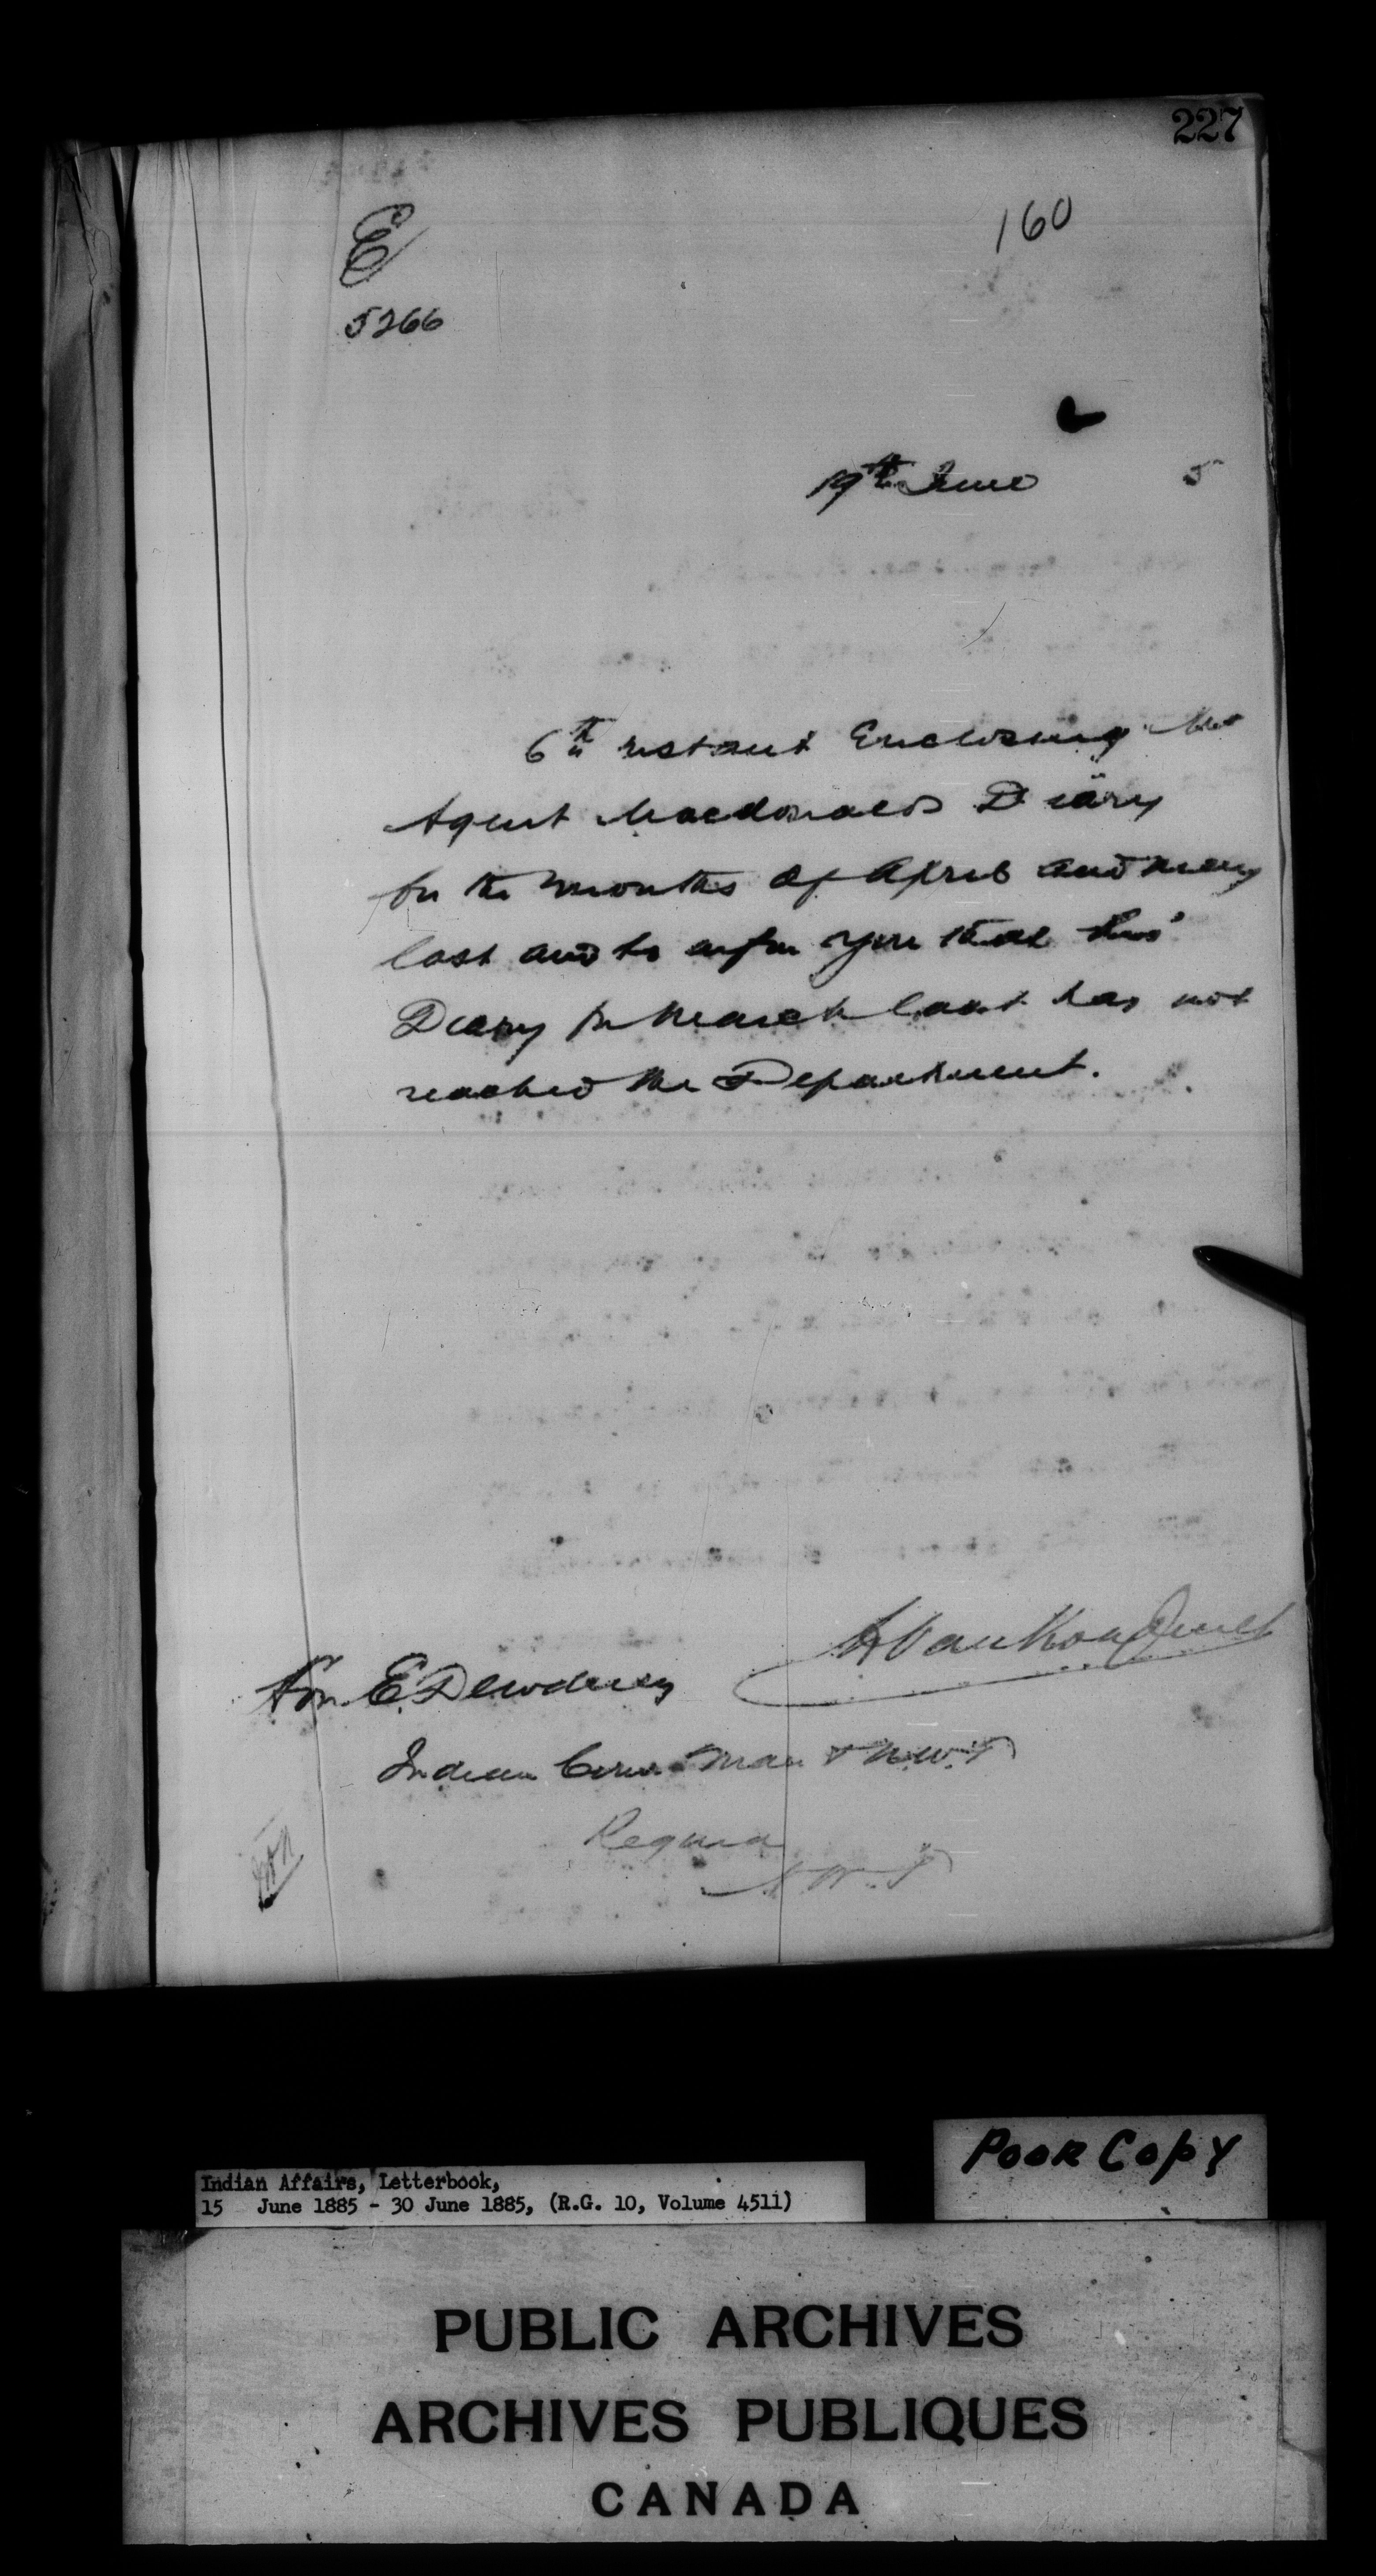 227
160
E
5266
19th June 5
6th instant Enclosing Mr
Agent Macdonalds Diary
for the months of April and May
last and to infor you that his
Diary for March last has not
reached the Department.
L VanKoughnet
Hon. E. Dewdney
Indian Comr Man & N.W.T
Regina
N.W.T
POOR COPY
Indian Affairs, Letterbook,
15 June 1885 - 30 June 1885, (R.G. 10, Volume 4511)
PUBLIC ARCHIVES
ARCHIVES PUBLIQUES
CANADA